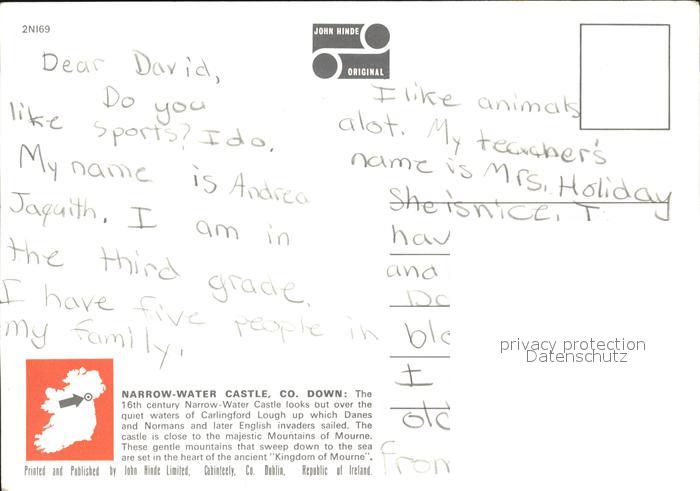 2N169
JOHN HINDE
ORIGINAL
Dear David,
Do you
like sports? I do.
My name is Andrea
Jaquith. I am in
the third grade.
I have five people in
my family.
I like animals
alot. My teacher's
name is Mrs. Holiday
She is nice. I
hav
and
Do
blo
I
old
from
privacy protection
Datenschutz
NARROW-WATER CASTLE, CO. DOWN: The
16th century Narrow-Water Castle looks out over the
quiet waters of Carlingford Lough up which Danes
and Normans and later English invaders sailed. The
castle is close to the majestic Mountains of Mourne.
These gentle mountains that sweep down to the sea
are set in the heart of the ancient "Kingdom of Mourne".
Printed and Published by John Hinde Limited, Cabinteely, Co. Dublin, Republic of Ireland.